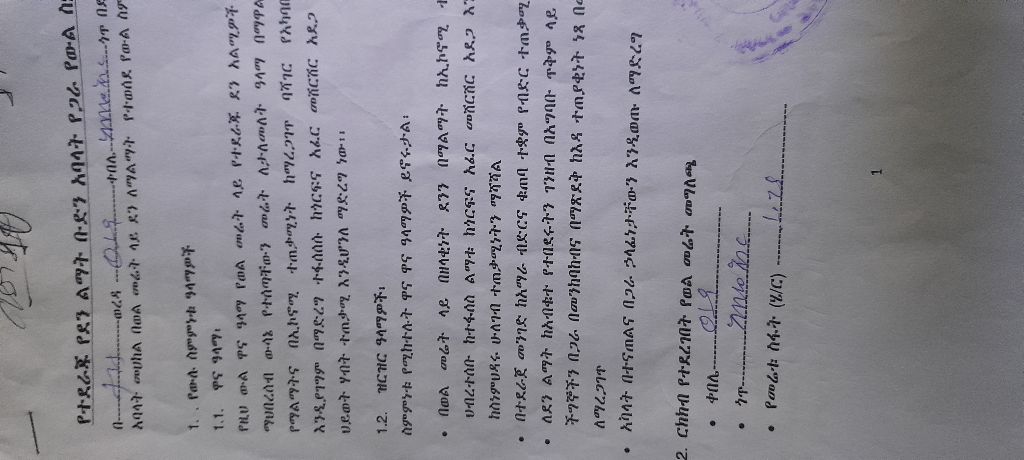 የተደራጁ የደን ልማት ቡድን አባላት የጋራ የውል ስ
በ-----------ወረዳ -----------ቀበሌ-----------ጎጥ በደ
አባላት መሀከል በወል መሬት ላይ ደን ለማልማት የተወሰደ የውል ስም
1. የውሉ ስምምነቱ ዓላማዎች
1.1. ዋና ዓላማ፡
የዚህ ውል ዋና ዓላማ የወል መሬት ላይ የተደራጁ ደን አልሚዎች
ማህበረሰብ ውሳኔ የተሰጣቸውን መሬት ሊታመሉለት ዓላማ በማዋል
የማልማትና በኢኮኖሚ ተጠቃሚነት ከማረጋገጥ ባሻገር የአካባ
እንዲያግዝም በማድረግ ተፋሰሱ ከጎርፍና አፈር መሸርሸር አደጋ
ህይወት ሃብት ተጠቃሚ እንዲሆንለ ማድረግ ነው፡፡
1.2. ዝርዝር ዓላማዎች፡
ስምምነቱ የሚከተሉት ዋና ዋና ዓላማዎች ይኖሩታል፡
• በወል መሬት ላይ በዘላቂነት ደንን በማልማት ከኢኮኖሚ ተ
ህብረተሰቡ ከተፋሰስ ልማቱ ከጎርፍና አፈር መሸርሸር አደጋ እን
ከስነምህዳሩ ሁለገብ ተጠቃሚነትን ማሻሻል
• በተደራጀ መንገድ ከአማራ ብድርና ቁጠባ ተቋም የብድር ተጠቃሚ
• ለደን ልማት ከአብቁተ የተበደሩትን ገንዘብ በአግባቡ ጥቅም ላይ
ችግኞችን በጋራ በመንከባከብና በማጽደቅ ከእዳ ተጠያቂነት ነጻ በ
ለማረጋገጥ
• አባላት በተናጠልና በጋራ ኃላፊነታቸውን እንዲወጡ ለማድረግ
2. ርክክብ የተደረገበት የወል መሬት መግለጫ
• ቀበሌ-----------
• ጎጥ-----------
• የመሬቱ ስፋት (ሄ/ር) -----------
1